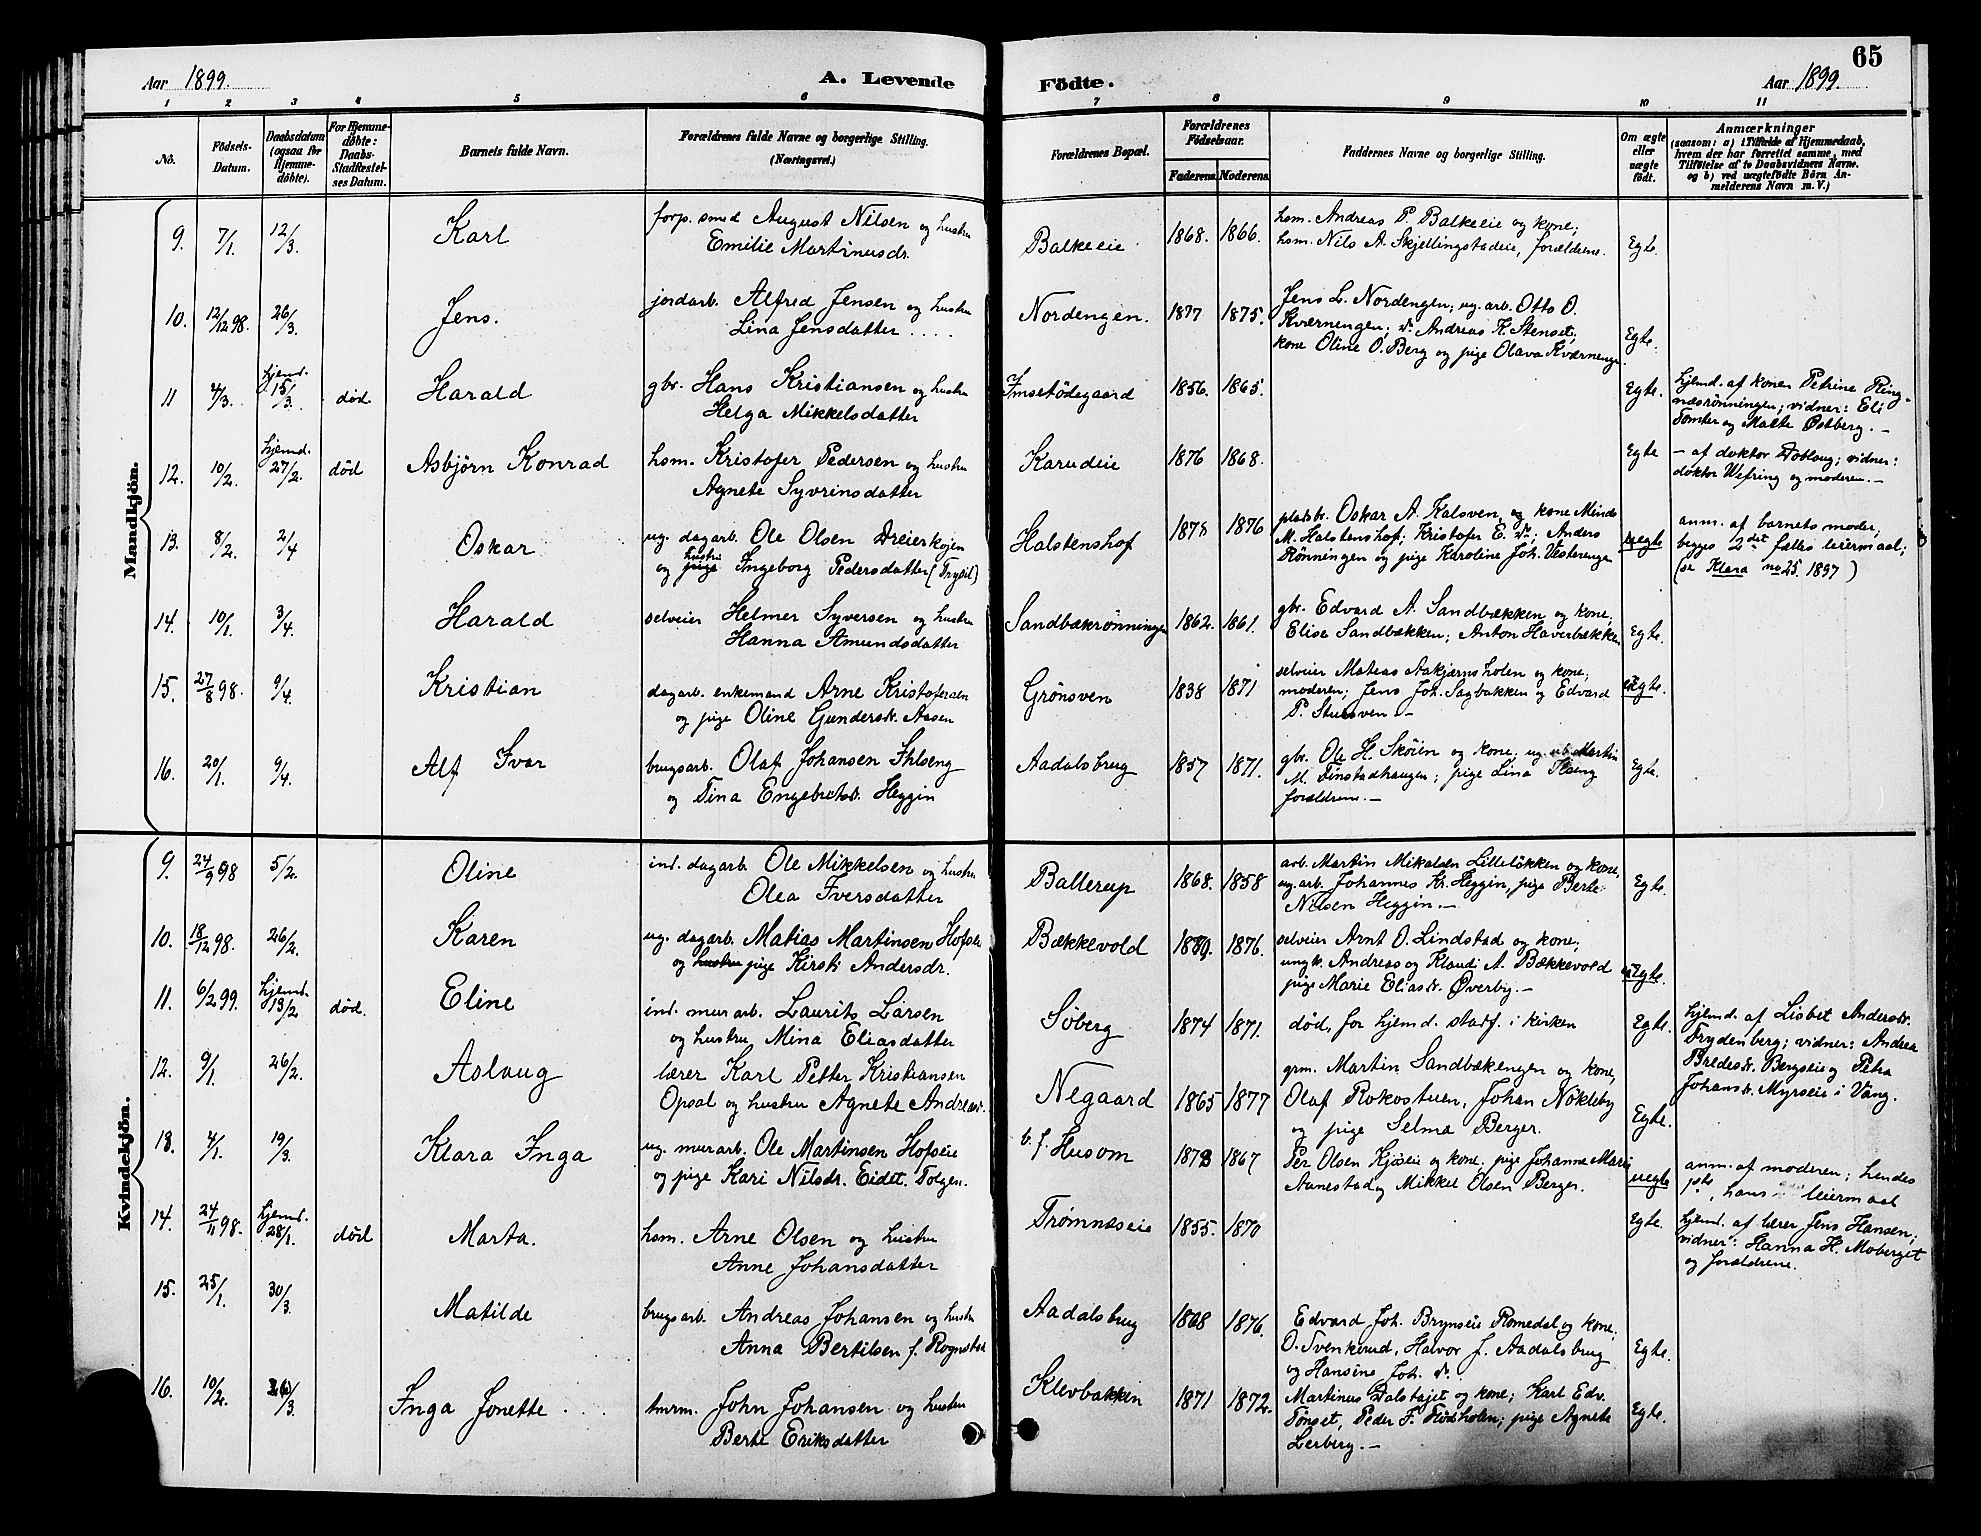 65
Aar 1899.
A. Levende
Födte.
Aar 1899.
1 2 3 4 5 6 7 8 9 10 11
No.
Födsels-
Datum.
Daabsdatum
(ogsaa for
Hjemme-
döbte).
For Hjemme-
döbte:
Daabs-
Stadfæstel-
ses Datum.
Barnets fulde Navn.
Forældrenes fulde Navne og borgerlige Stilling.
(Næringsvei.)
Forældrenes Bopæl.
Forældrenes
Födselsaar.
Faderens. Moderens.
Faddernes Navne og borgerlige Stilling.
Om ægte
eller
uægte
födt.
Anmærkninger
(saasom: a) i Tilfælde af Hjemmedaab,
hvem der har forrettet samme, med
Tilföielse af to Daabsvidners Navne.
og b) ved uægtefödte Börn An-
melderens Navn m. V.)
Mandkjön.
9. 7/1. 12/3. Karl
forp. smed August Nilsen og hustru
Emilie Martinusdr.
Balkeeie 1868. 1866.
hsm. Andreas P. Balkeeie og kone;
hsm. Nils A. Skjellingstadeie, forældrene.
Egte.
10. 12/12 98. 26/3. Jens.
jordarb. Alfred Jensen og hustru
Lina Jensdatter ....
Nordengen. 1877 1875.
Jens L. Nordengen; ug. arb. Otto O.
Kværnengen; do. Andreas K. Stenset;
kone Oline O. Berg og pige Olava Kværnenge
Egte.
11 4/3. hjemd. 15/3. död. Harald
gbr. Hans Kristiansen og hustru
Helga Mikkelsdatter
Imsetödegaard 1856. 1865.
Egte.
hjemd. af konen Petrine Ring-
næsrönningen; vidner: Eli
Tomter og Malte Østberg. —
12. 10/2. hjemd. 27/2. död Asbjörn Konrad
hsm. Kristofer Pedersen og hustru
Agnete Syvrinsdatter
Karudeie 1876 1868.
Egte
— af doktor Doblaug; vidner:
doktor Wefring og moderen. —
13. 8/2. 2/4 Oskar
ug. dagarb. Ole Olsen Dreierkojen
hustru
og pige Ingeborg Pedersdatter (Trysil)
Halstenshof 1878 1876
pladsbr. Oskar A. Kalsven og kone Minda
M. Halstenshof; Kristofer E. do.; Anders
Rönningen og pige Karoline Joh. Vesterenge
uegte
anm. af barnets moder,
begges 2det fælles leiermaal;
(se Klara no 25. 1897)
14. 10/1. 3/4. Harald
selveier Helmer Syversen og hustru
Hanna Amundsdatter
Sandbækrönningen 1862. 1861.
gbr. Edvard A. Sandbækken og kone;
Elise Sandbækken; Anton Haverbækken
Egte.
15. 27/8 98. 9/4. Kristian
dagarb. enkemand Arne Kristofersen
og pige Oline Gundersdr. Aasen
Grönsven 1838 1871
selveier Matias Aakjærnsholen og kone;
moderen; Jens Joh. Sagbakken og Edvard
P. Stubsven. —
uegte.
16. 20/1. 9/4. Alf Ivar
brugsarb. Olaf Johansen Ihlseng
og Tina Engebretsdr. Heggin
Aadalsbrug 1857 1871.
gbr. Ole H. Sköien og kone; ug. arb. Martin
M. Finstadhaugen; pige Lina Ilseng
forældrene. —
Egte.
Kvindekjön.
9. 24/9 98 5/2. Oline
ind. dagarb. Ole Mikkelsen og hustru
Olea Iversdatter
Ballerup 1868. 1858
arb. Martin Mikalsen Lilleløkken og kone,
ug. arb. Johannes Kr. Heggin, pige Berte
Nilsen Heggin. —
Egte.
10. 18/12 98. 26/2. Karen
ug. dagarb. Matias Martinsen Hofseie
og hustru pige Kirsti Andersdr.
Bækkevold 1880. 1876.
selveier Arnt O. Lindstad og kone;
ungk. Andreas og Klaudi A. Bækkevold
pige Marie Eliasdr. Øverby. —
uegte.
11. 6/2 99. hjemd. 13/2 död. Eline
ind. murarb. Laurits Larsen
og hustru Mina Eliasdatter
Söberg 1874 1871.
död, for hjemd. stadf. i kirken
Egte.
hjemd. af Lisbet Andersdr.
Frydenberg; vidner: Andrea
Bredesdr. Bergseie og Petra
Johansdr. Myrseie i Vang.
12. 9/1. 26/2. Aslaug
lærer Karl Petter Kristiansen
Opsal og hustru Agnete Andreasdr.
Negaard 1865 1877
grm. Martin Sandbækengen og kone,
Olaf Rokostuen, Johan Nökleby
og pige Selma Berger.
Egte.
13. 4/1. 19/3. Klara Inga
ug. murarb. Ole Martinsen Hofseie
og pige Kari Nilsdr. Eidet. Tolgen.
b. f. Husom 1873 1867
Per Olsen Kjöseie og kone. pige Johanne Marie
Aanestad og Mikkel Olsen Berger.
uegte
anm. af moderen; hendes
1ste, hans leiermaal
14. 24/11 98. hjemd. 28/1. död Marta.
hsm. Arne Olsen og hustru
Anne Johansdatter
Trömnæseie 1855. 1870
Egte.
hjemd. af lærer Jens Hansen;
vidner: Hanna H. Moberget
og forældrene.
15. 25/1. 30/3. Matilde
brugsarb. Andreas Johansen og hustru
Anna Bertilsen f. Rognstad
Aadalsbrug 1868 1876.
Edvard Joh. Brynseie Romedal og kone;
O. Svenkerud, Halvor J. Aadalsbrug
og Hansine Joh. do.
Egte.
16. 10/2. 26/3. Inga Jonette ....
tmrm. John Johansen og hustru
Berte Eriksdatter
Klevbakken 1871 1872.
Martinus Dalshøjet og kone; Karl Edv.
Tönset, Peder F. Flödsholen; pige Agnete
Lerberg. —
Egte.